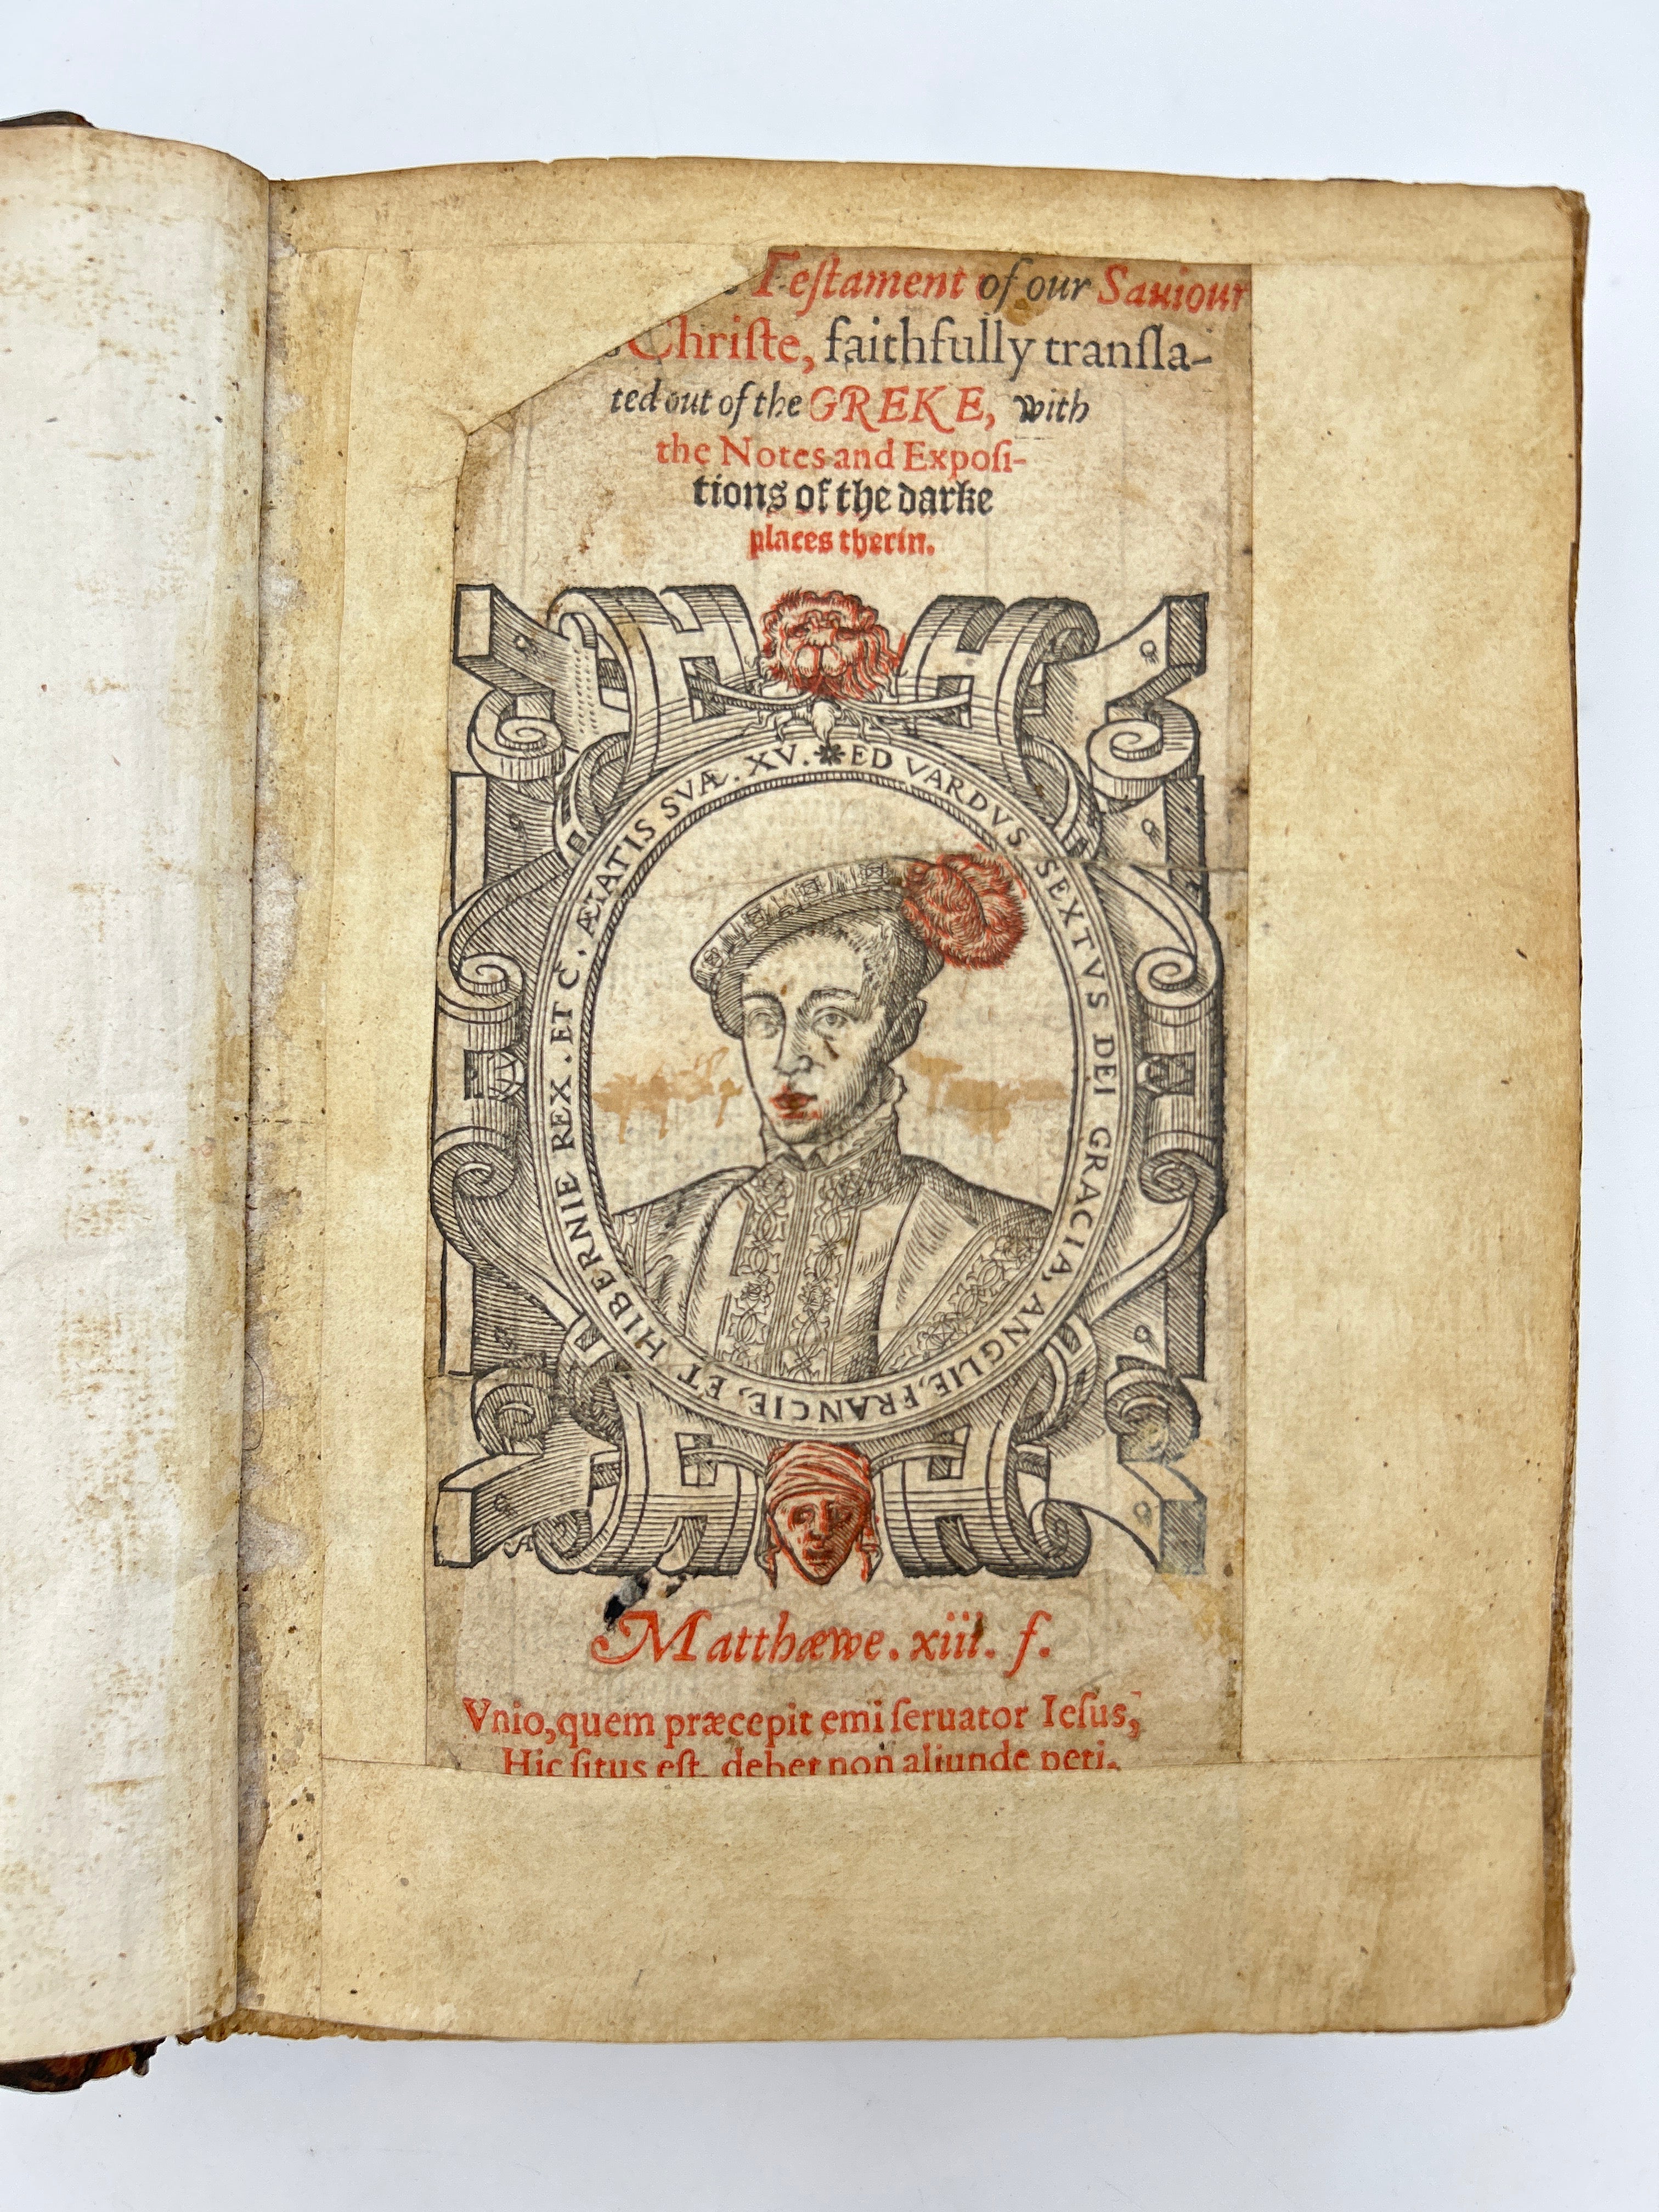 Teſtament of our Sauiour
Chriſte, faithfully tranſla-
ted out of the GREKE, with
the Notes and Expoſi-
tions of the darke
places therin.
✻ EDVARDVS SEXTVS DEI GRACIA, ANGLIE, FRANCIE, ET HIBERNIE REX. ET C̄. ÆTATIS SVÆ. XV.
Matthæwe. xiii. f.
Vnio, quem præcepit emi ſeruator Ieſus,
Hic ſitus eſt, debet non aliunde peti.